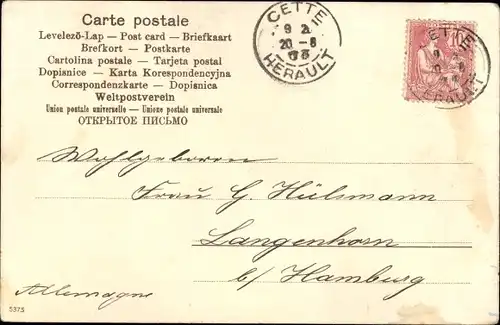 Carte postale
Levelezö-Lap — Post card — Briefkaart
Brefkort — Postkarte
Cartolina postale — Tarjeta postal
Dopisnice — Karta Korespondencyjna
Correspondenzkarte — Dopisnica
Weltpostverein
Union postale universelle — Unione postale universale
ОТКРЫТОЕ ПИСЬМО
CETTE
20 - 8
HERAULT
10
CETTE
HERAULT
Wohlgeboren
Frau G. Hülsmann
Langenhorn
b/ Hamburg
Allemagne
5375